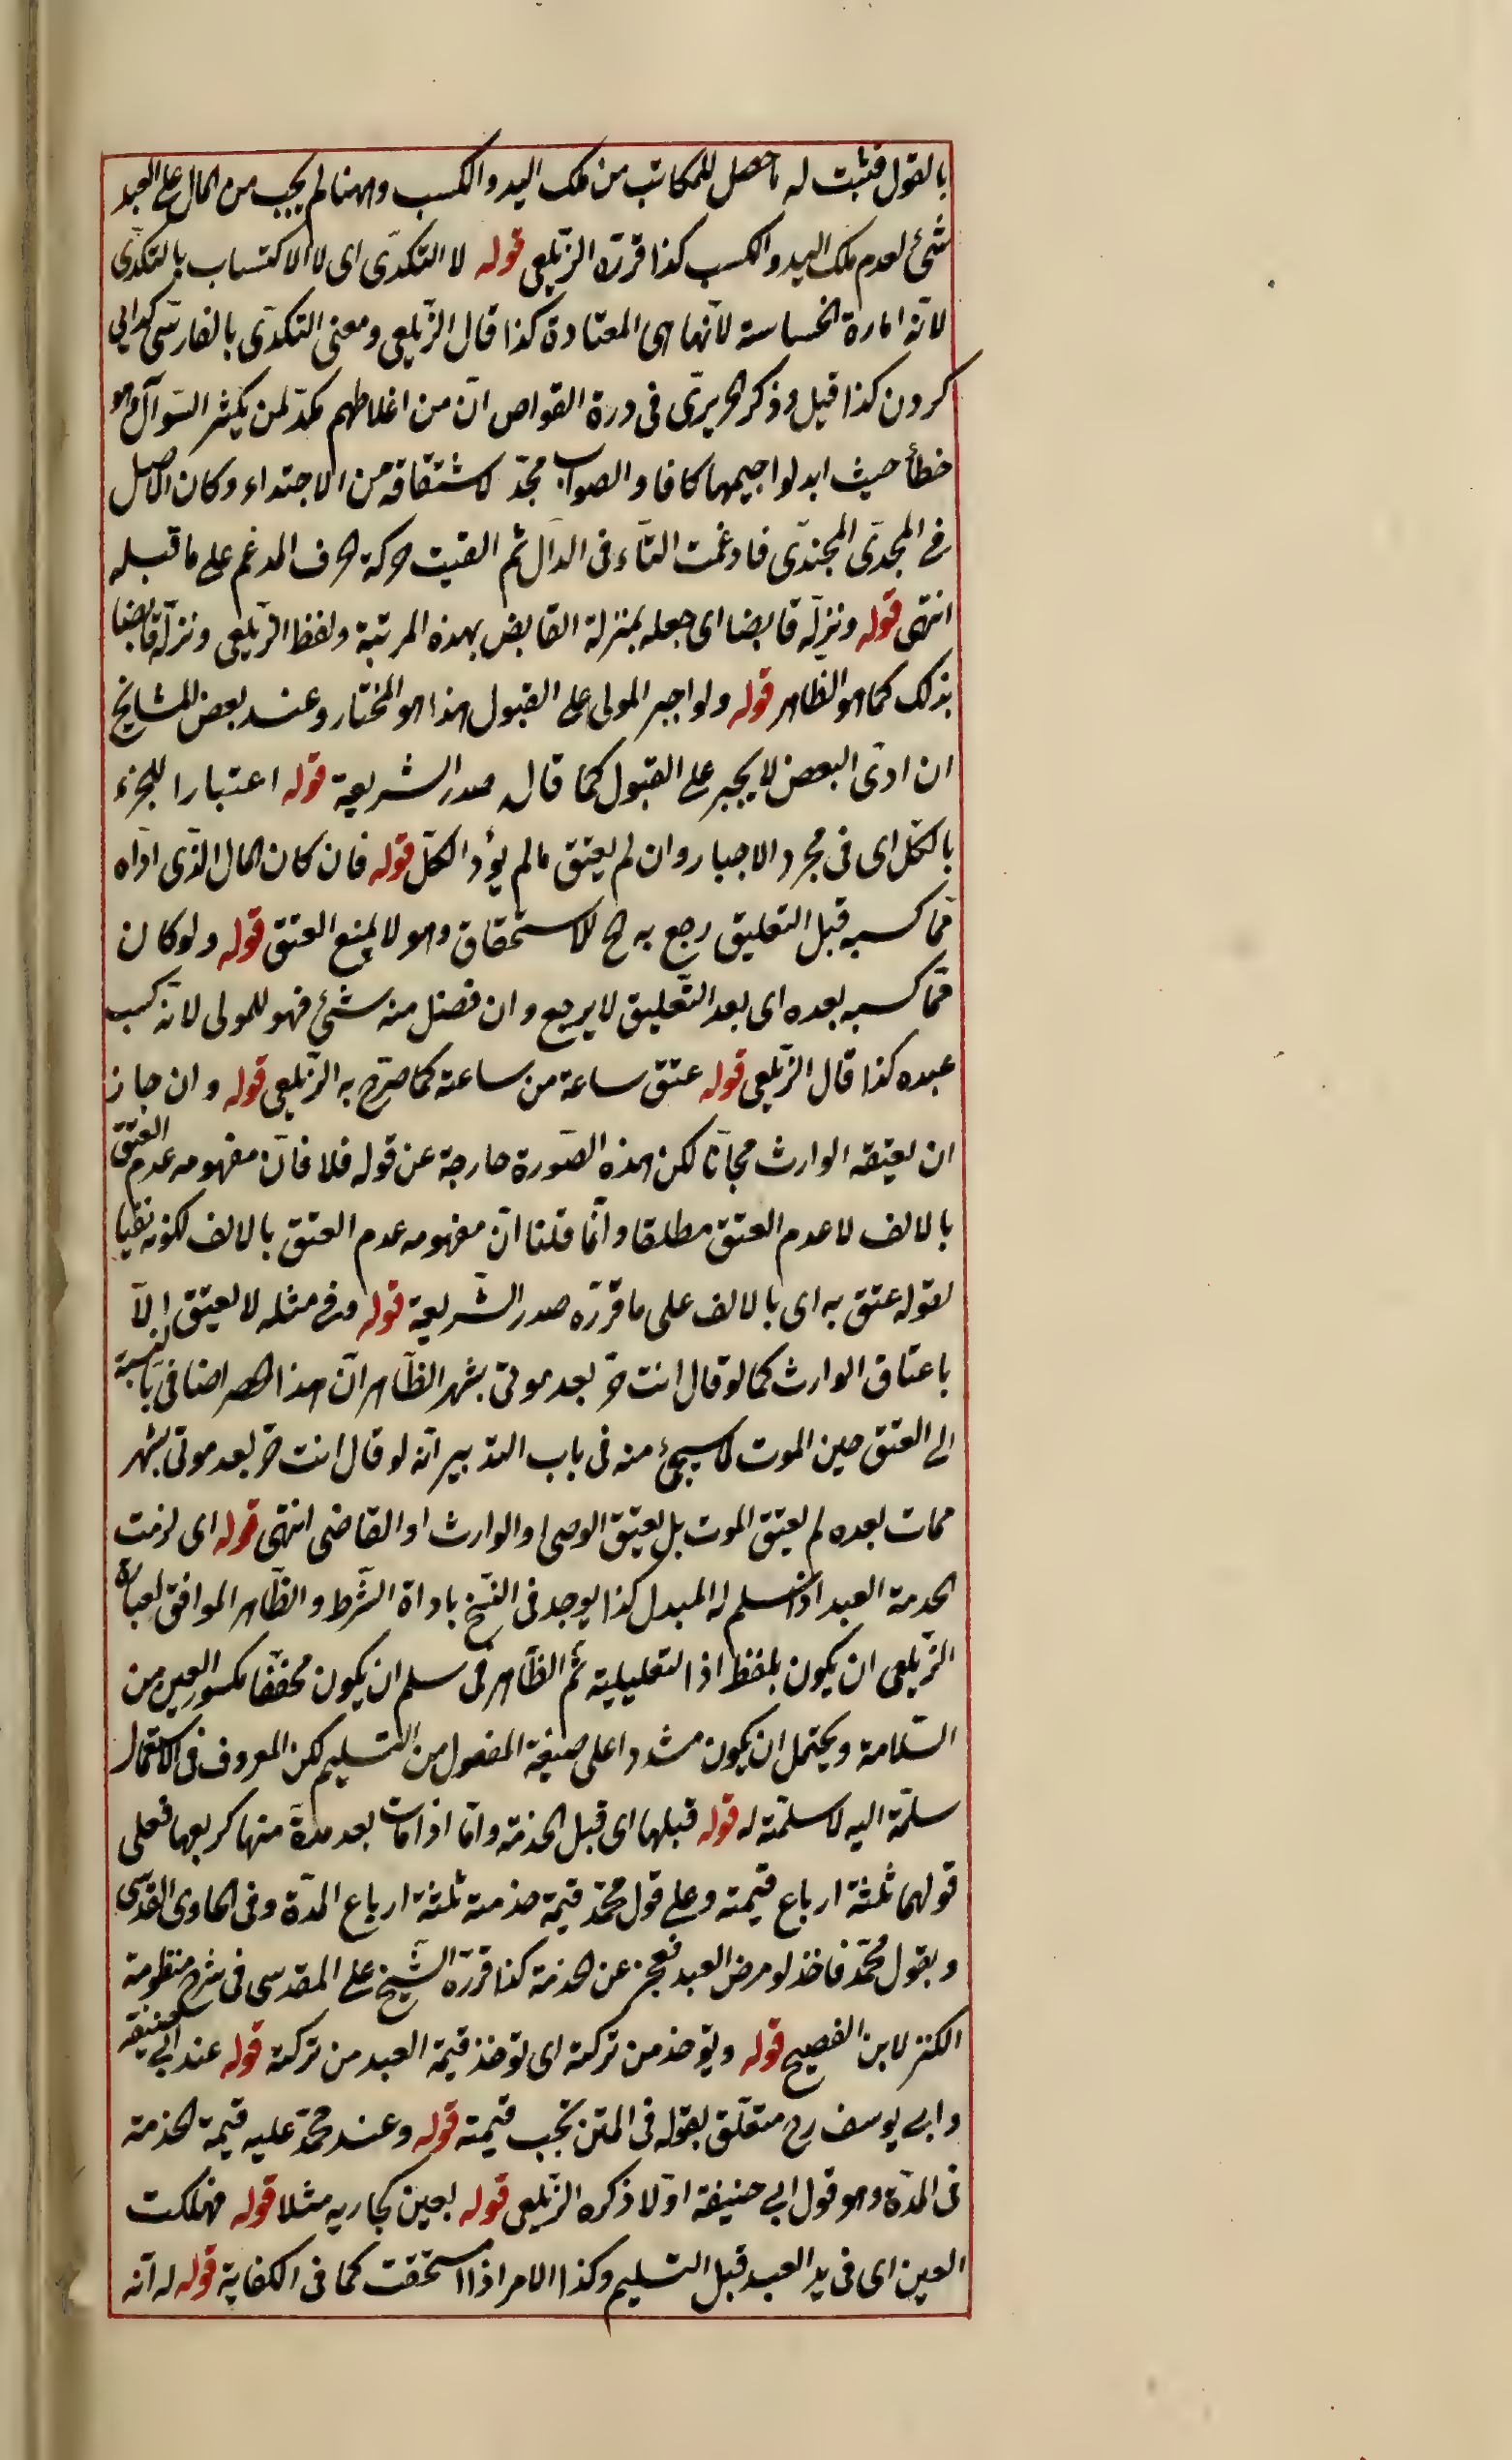 بالقول فثبت له ما حصل للمكاتب من ملك اليد والكسب وههنا لم يجب من المال على العبد
شئ لعدم ملك اليد والكسب كذا قرره الزيلعى قوله لا التكدى اى لا الاكتساب بالتكدى
لانه امارة الخساسة لانها هى المعتادة كذا قال الزيلعى ومعنى التكدى بالفارسى كدايى
كردن كذا قيل وذكر الحريرى فى درة القواص ان من اغلاطهم مكد لمن يكثر السؤال وهو
خطأ حيث ابدلوا جيمها كافا والصواب مجد لاشتقاقه من الاجتداء وكان الاصل
فى المجدى المجتدى فادغمت التاء فى الدال ثم القيت حركة الحرف المدغم على ما قبله
انتهى قوله ونزله قابضا اى جعله بمنزلة القابض بهذه المرتبة ولفظ الزيلعى ونزله قابضا
بذلك كما هو الظاهر قوله ولو اجبر المولى على القبول هذا هو المختار وعند بعض المشايخ
ان ادى البعض لا يجبر على القبول كما قال صدر الشريعة قوله اعتبارا للجزء
بالكل اى فى مجرد الاجبار وان لم يعتق ما لم يؤد الكل قوله فان كان المال الذى اداه
مما كسبه قبل التعليق رجع به ح للاستحقاق وهو لا يمنع العتق قوله ولو كان
مما كسبه بعده اى بعد التعليق لا يرجع وان فضل منه شئ فهو للمولى لانه كسب
عبده كذا قال الزيلعى قوله عتق ساعة من ساعته كما صرح به الزيلعى قوله وان جاز
ان يعتقه الوارث مجانا لكن هذه الصورة خارجة عن قوله فلا فان مفهومه عدم العتق
بالالف لا عدم العتق مطلقا وانما قلنا ان مفهومه عدم العتق بالالف لكونه نفيا
لقوله عتق به اى بالالف على ما قرره صدر الشريعة قوله وفى مثله لا يعتق الا
باعتاق الوارث كما لو قال انت حر بعد موتى بشهر الظاهر ان هذا الحصر اضافى بالنسبة
الى العتق حين الموت لا سيجئ منه فى باب التدبير انه لو قال انت حر بعد موتى بشهر
فمات بعده لم يعتق الموت بل يعتق الوصى او الوارث او القاضى انتهى قوله اى لزمت
الخدمة العبد اذا سلم له المبدل كذا يوجد فى النسخ باداة الشرط والظاهر الموافق لعبارة
الزيلعى ان يكون بلفظ اذ التعليلية ثم الظاهر فى سلم ان يكون مخففا مكسور العين من
السلامة ويحتمل ان يكون مشددا على صيغة المفعول من التسليم لكن المعروف فى الاستعمال
سلمته اليه لا سلمته له قوله قبلها اى قبل الخدمة واما اذا مات بعد مدة منها كربعها فعلى
قولهما ثلثة ارباع قيمته وعلى قول محمد قيمة خدمته ثلثة ارباع المدة وفى الحاوى القدسى
وبقول محمد فاخذ لو مرض العبد فعجز عن الخدمة كذا قرره الشيخ على المقدسى فى شرح منظومة
الكنز لابن الفصيح قوله ويؤخذ من تركته اى تؤخذ قيمة العبد من تركته قوله عند ابى حنيفة
وابى يوسف رح متعلق بقوله فى المتن تجب قيمته قوله وعند محمد عليه قيمة الخدمة
فى المدة وهو قول ابى حنيفة اولا ذكره الزيلعى قوله بعين كجارية مثلا قوله فهلكت
العين اى فى يد العبد قبل التسليم وكذا الامر اذا استحقت كما فى الكفاية قوله له انه